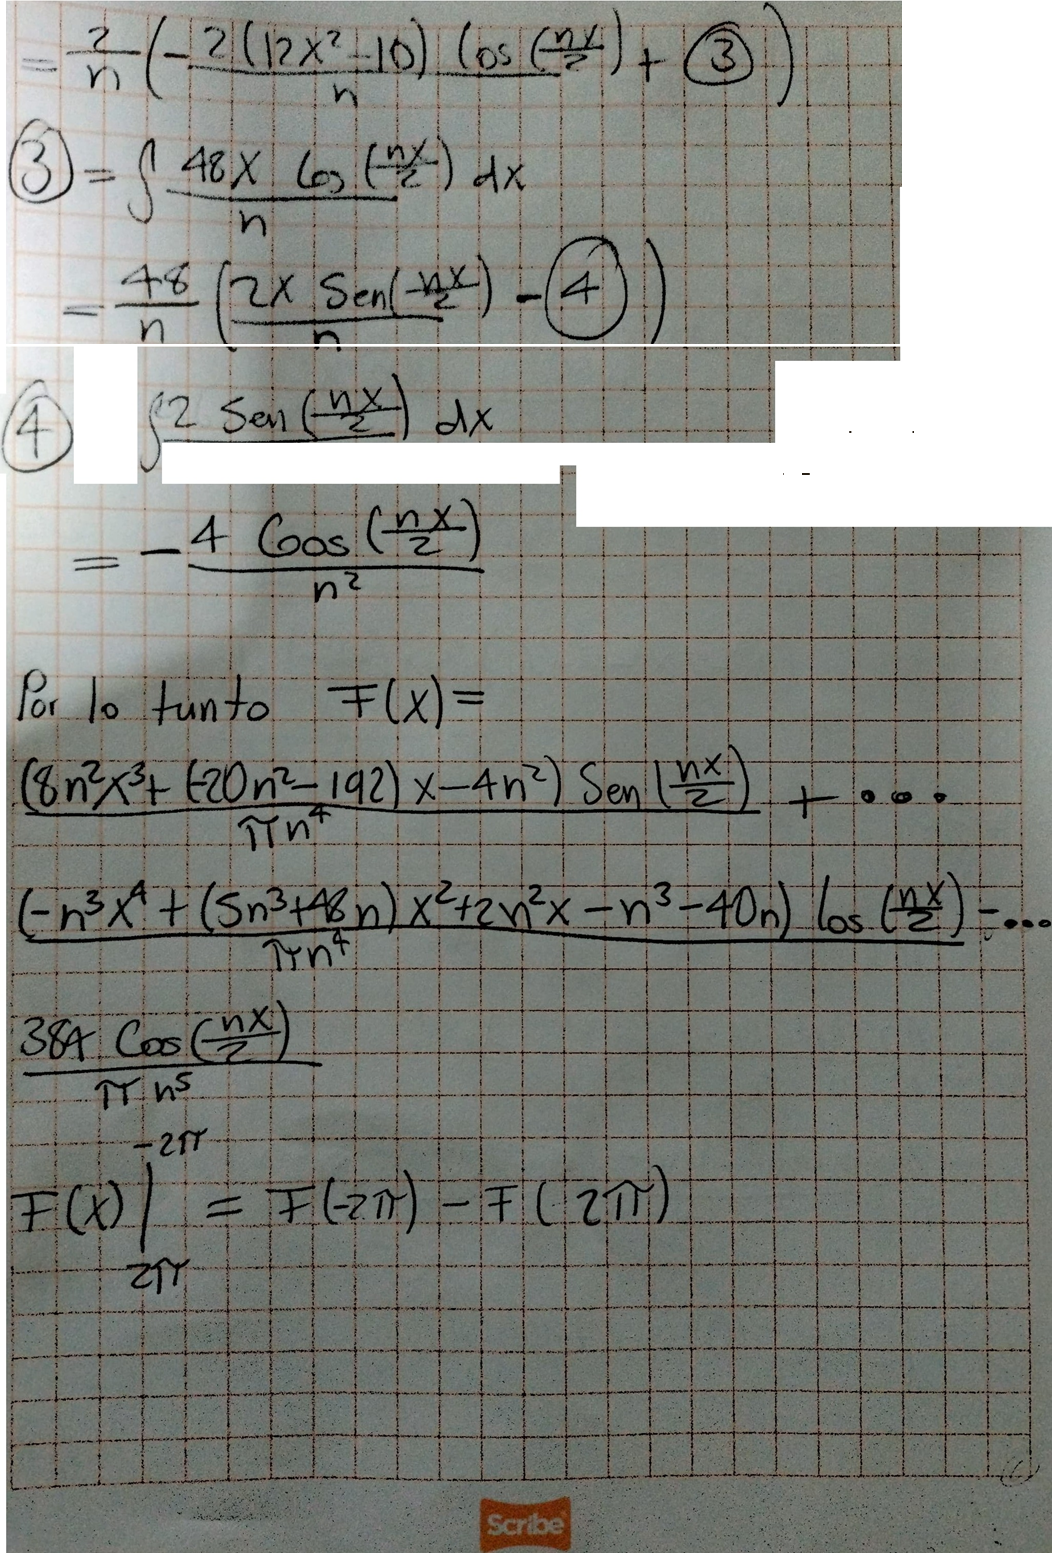 = 2/n (- 2(12x² - 10) Cos(nx/2) / n + ③)
③ = ∫ 48x Cos(nx/2) / n dx
= 48/n (2x Sen(nx/2) / n - ④)
④ ∫ 2 Sen(nx/2) dx
= - 4 Cos(nx/2) / n²
Por lo tunto F(x) =
(8n²x³ + (-20n² - 192)x - 4n²) Sen(nx/2) / πn⁴ + ...
(-n³x⁴ + (5n³ + 48n)x² + 2n²x - n³ - 40n) Cos(nx/2) / πn⁴ - ...
384 Cos(nx/2) / πn⁵
F(x) |_{2π}^{-2π} = F(-2π) - F(2π)
Scribe